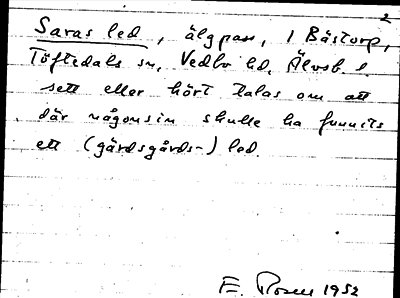 2
Saras led, älgpass, i Bästorp,
Töftedals sn, Vedbo hd, Älvsb. l.
sett eller hört talas om att
där någonsin skulle ha funnits
ett (gärdsgårds-) led.
E. Rosen 1952